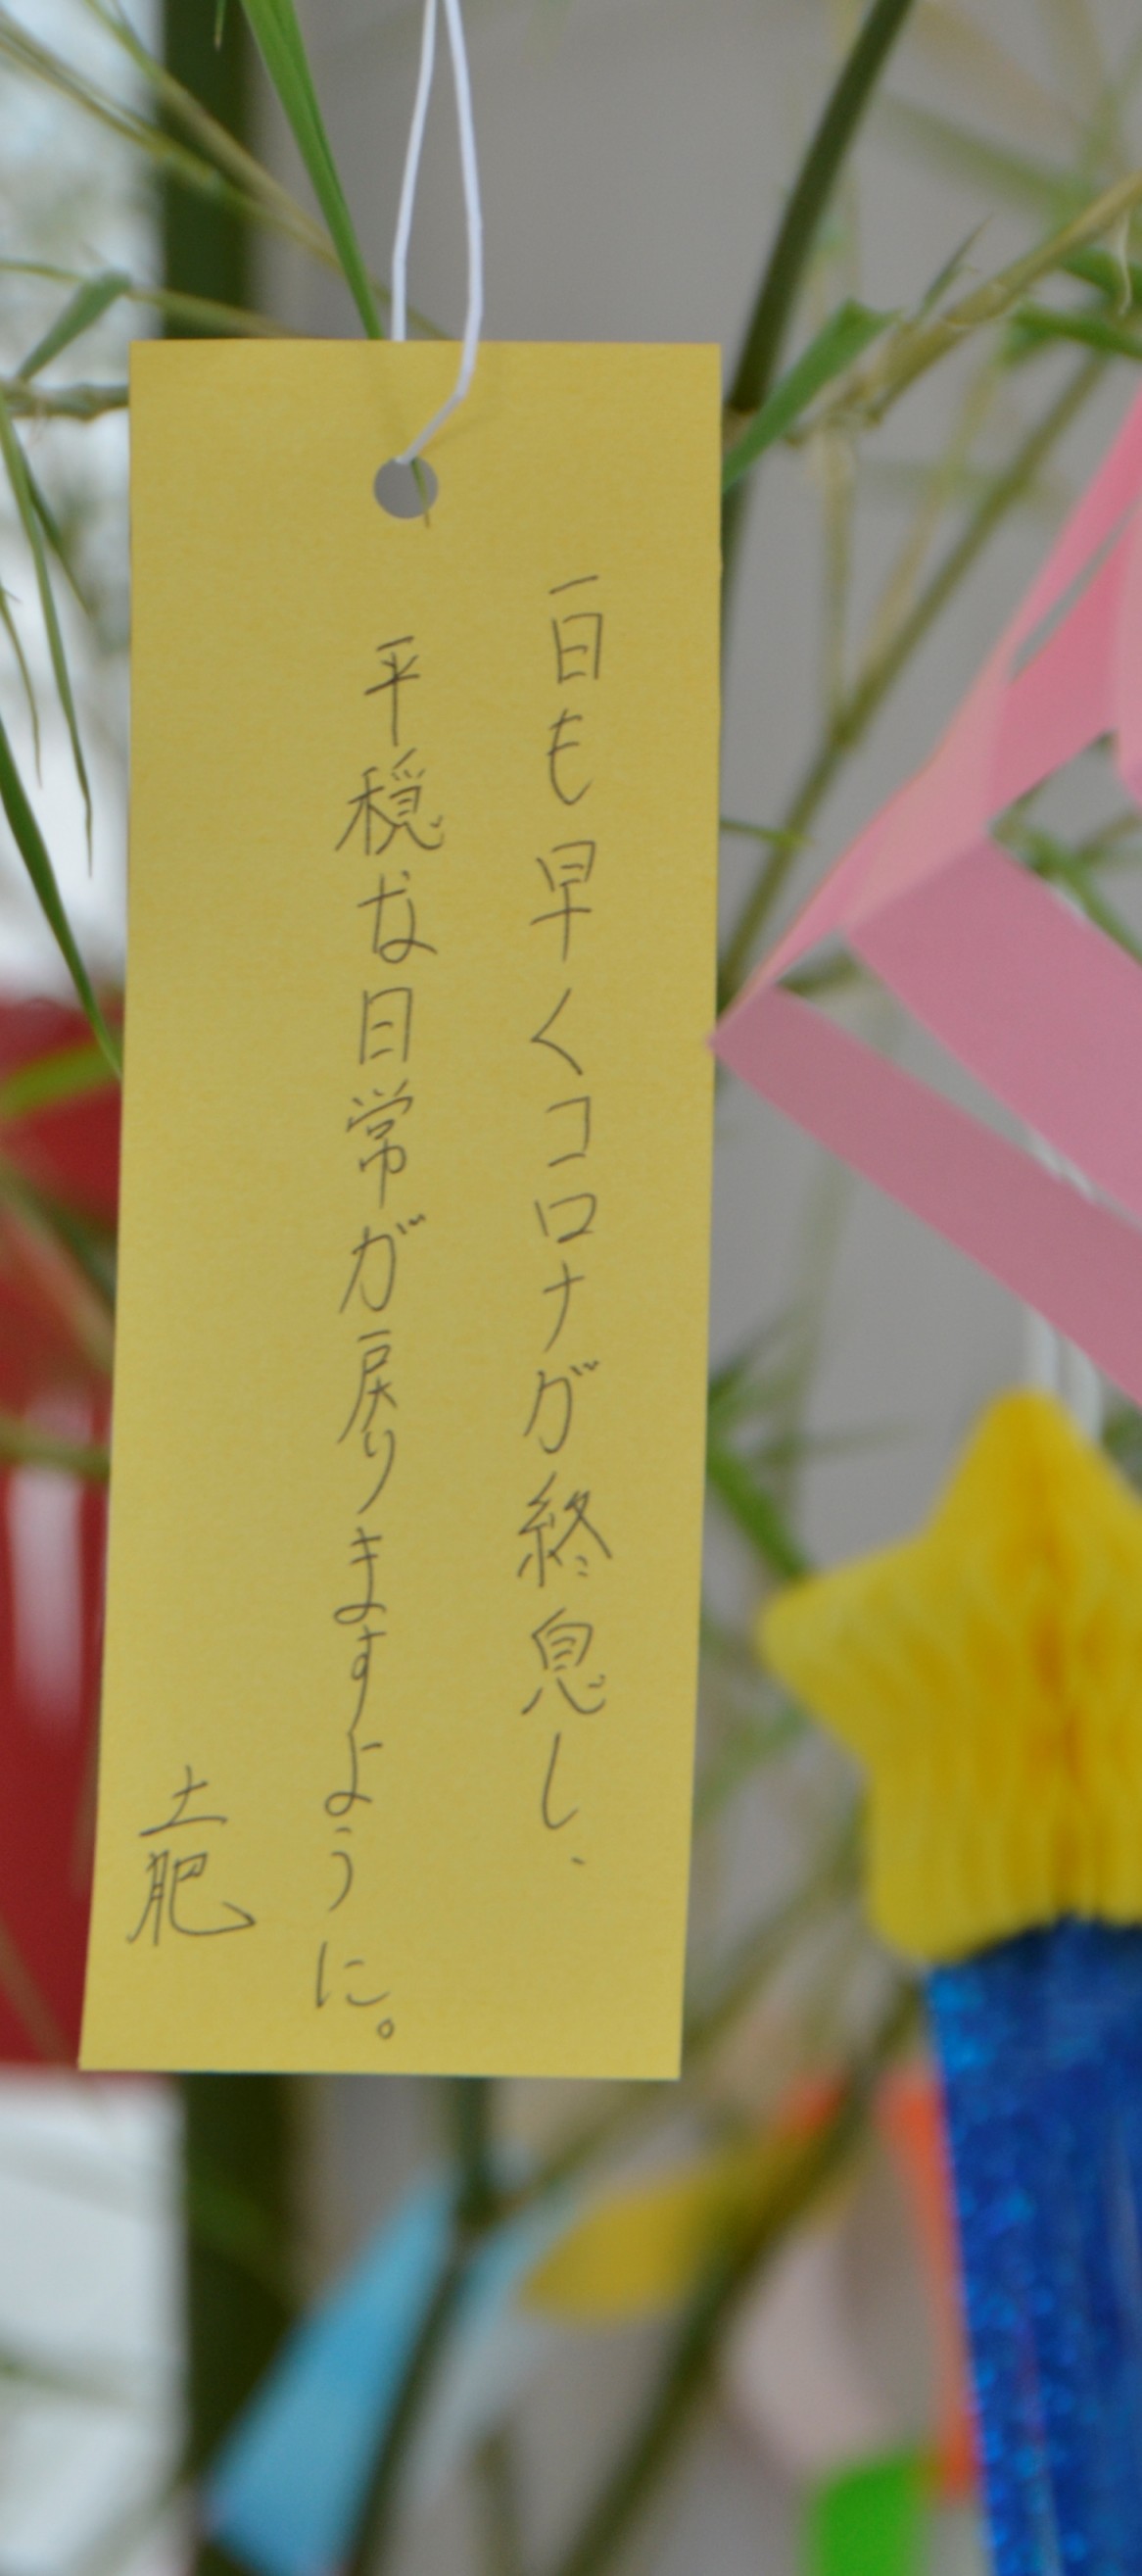 一日も早くコロナが終息し、
平穏な日常が戻りますように。
土肥